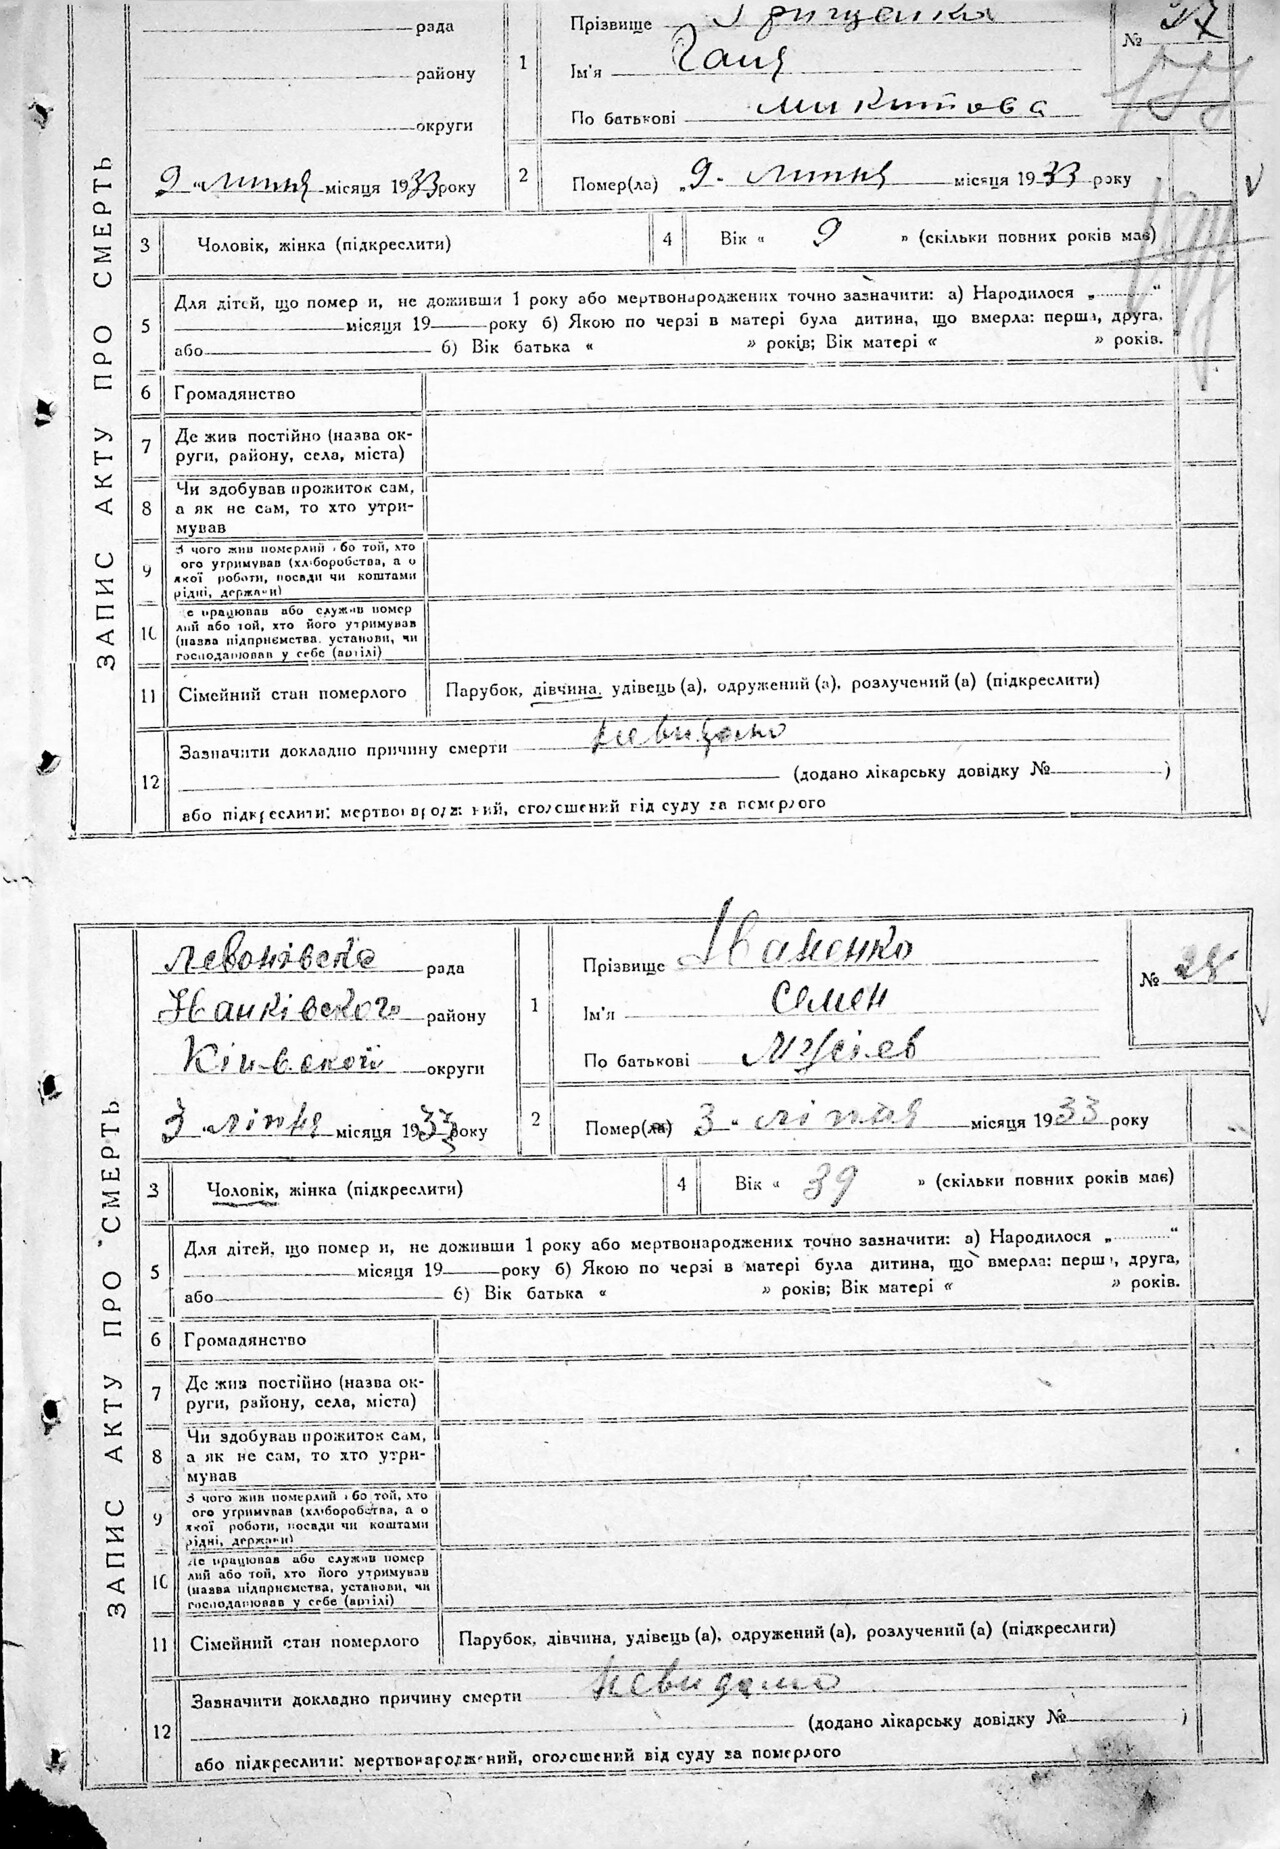 ЗАПИС АКТУ ПРО СМЕРТЬ
рада
району
округи
9 липня місяця 1933 року
1
Прізвище Грищенко
Ім'я Ганя
По батькові Микитова
№ 27
2
Помер(ла) „9 липня місяця 1933 року
3
Чоловік, жінка (підкреслити)
4
Вік « 9 » (скільки повних років має)
5
Для дітей, що помер и, не доживши 1 року або мертвонароджених точно зазначити: а) Народилося „ “
місяця 19 року б) Якою по черзі в матері була дитина, що вмерла: перша, друга,
або б) Вік батька « » років; Вік матері « » років.
6
Громадянство
7
Де жив постійно (назва ок-
руги, району, села, міста)
8
Чи здобував прожиток сам,
а як не сам, то хто утри-
мував
9
З чого жив померлий або той, хто
ого утримував (хліборобства, а о
якої роботи, посади чи коштами
рідні, держави)
10
Де працював або служив помер
лий або той, хто його утримував
(назва підприємства, установи, чи
господарював у себе (артілі)
11
Сімейний стан померлого
Парубок, дівчина, удівець (а), одружений (а), розлучений (а) (підкреслити)
12
Зазначити докладно причину смерти невидомо
(додано лікарську довідку № )
або підкреслити: мертвонароджений, оголошений від суду за померлого
ЗАПИС АКТУ ПРО СМЕРТЬ
Левонівска рада
Іванківського району
Київской округи
3 ліпня місяця 1933 року
1
Прізвище Іваненко
Ім'я Семен
По батькові
№ 28
2
Помер(ла) 3 ліпня місяця 1933 року
3
Чоловік, жінка (підкреслити)
4
Вік « 39 » (скільки повних років має)
5
Для дітей, що помер и, не доживши 1 року або мертвонароджених точно зазначити: а) Народилося „ “
місяця 19 року б) Якою по черзі в матері була дитина, що вмерла: перша, друга,
або б) Вік батька « » років; Вік матері « » років.
6
Громадянство
7
Де жив постійно (назва ок-
руги, району, села, міста)
8
Чи здобував прожиток сам,
а як не сам, то хто утри-
мував
9
З чого жив померлий або той, хто
ого утримував (хліборобства, а о
якої роботи, посади чи коштами
рідні, держави)
10
Де працював або служив помер
лий або той, хто його утримував
(назва підприємства, установи, чи
господарював у себе (артілі)
11
Сімейний стан померлого
Парубок, дівчина, удівець (а), одружений (а), розлучений (а) (підкреслити)
12
Зазначити докладно причину смерти невидомо
(додано лікарську довідку № )
або підкреслити: мертвонароджений, оголошений від суду за померлого